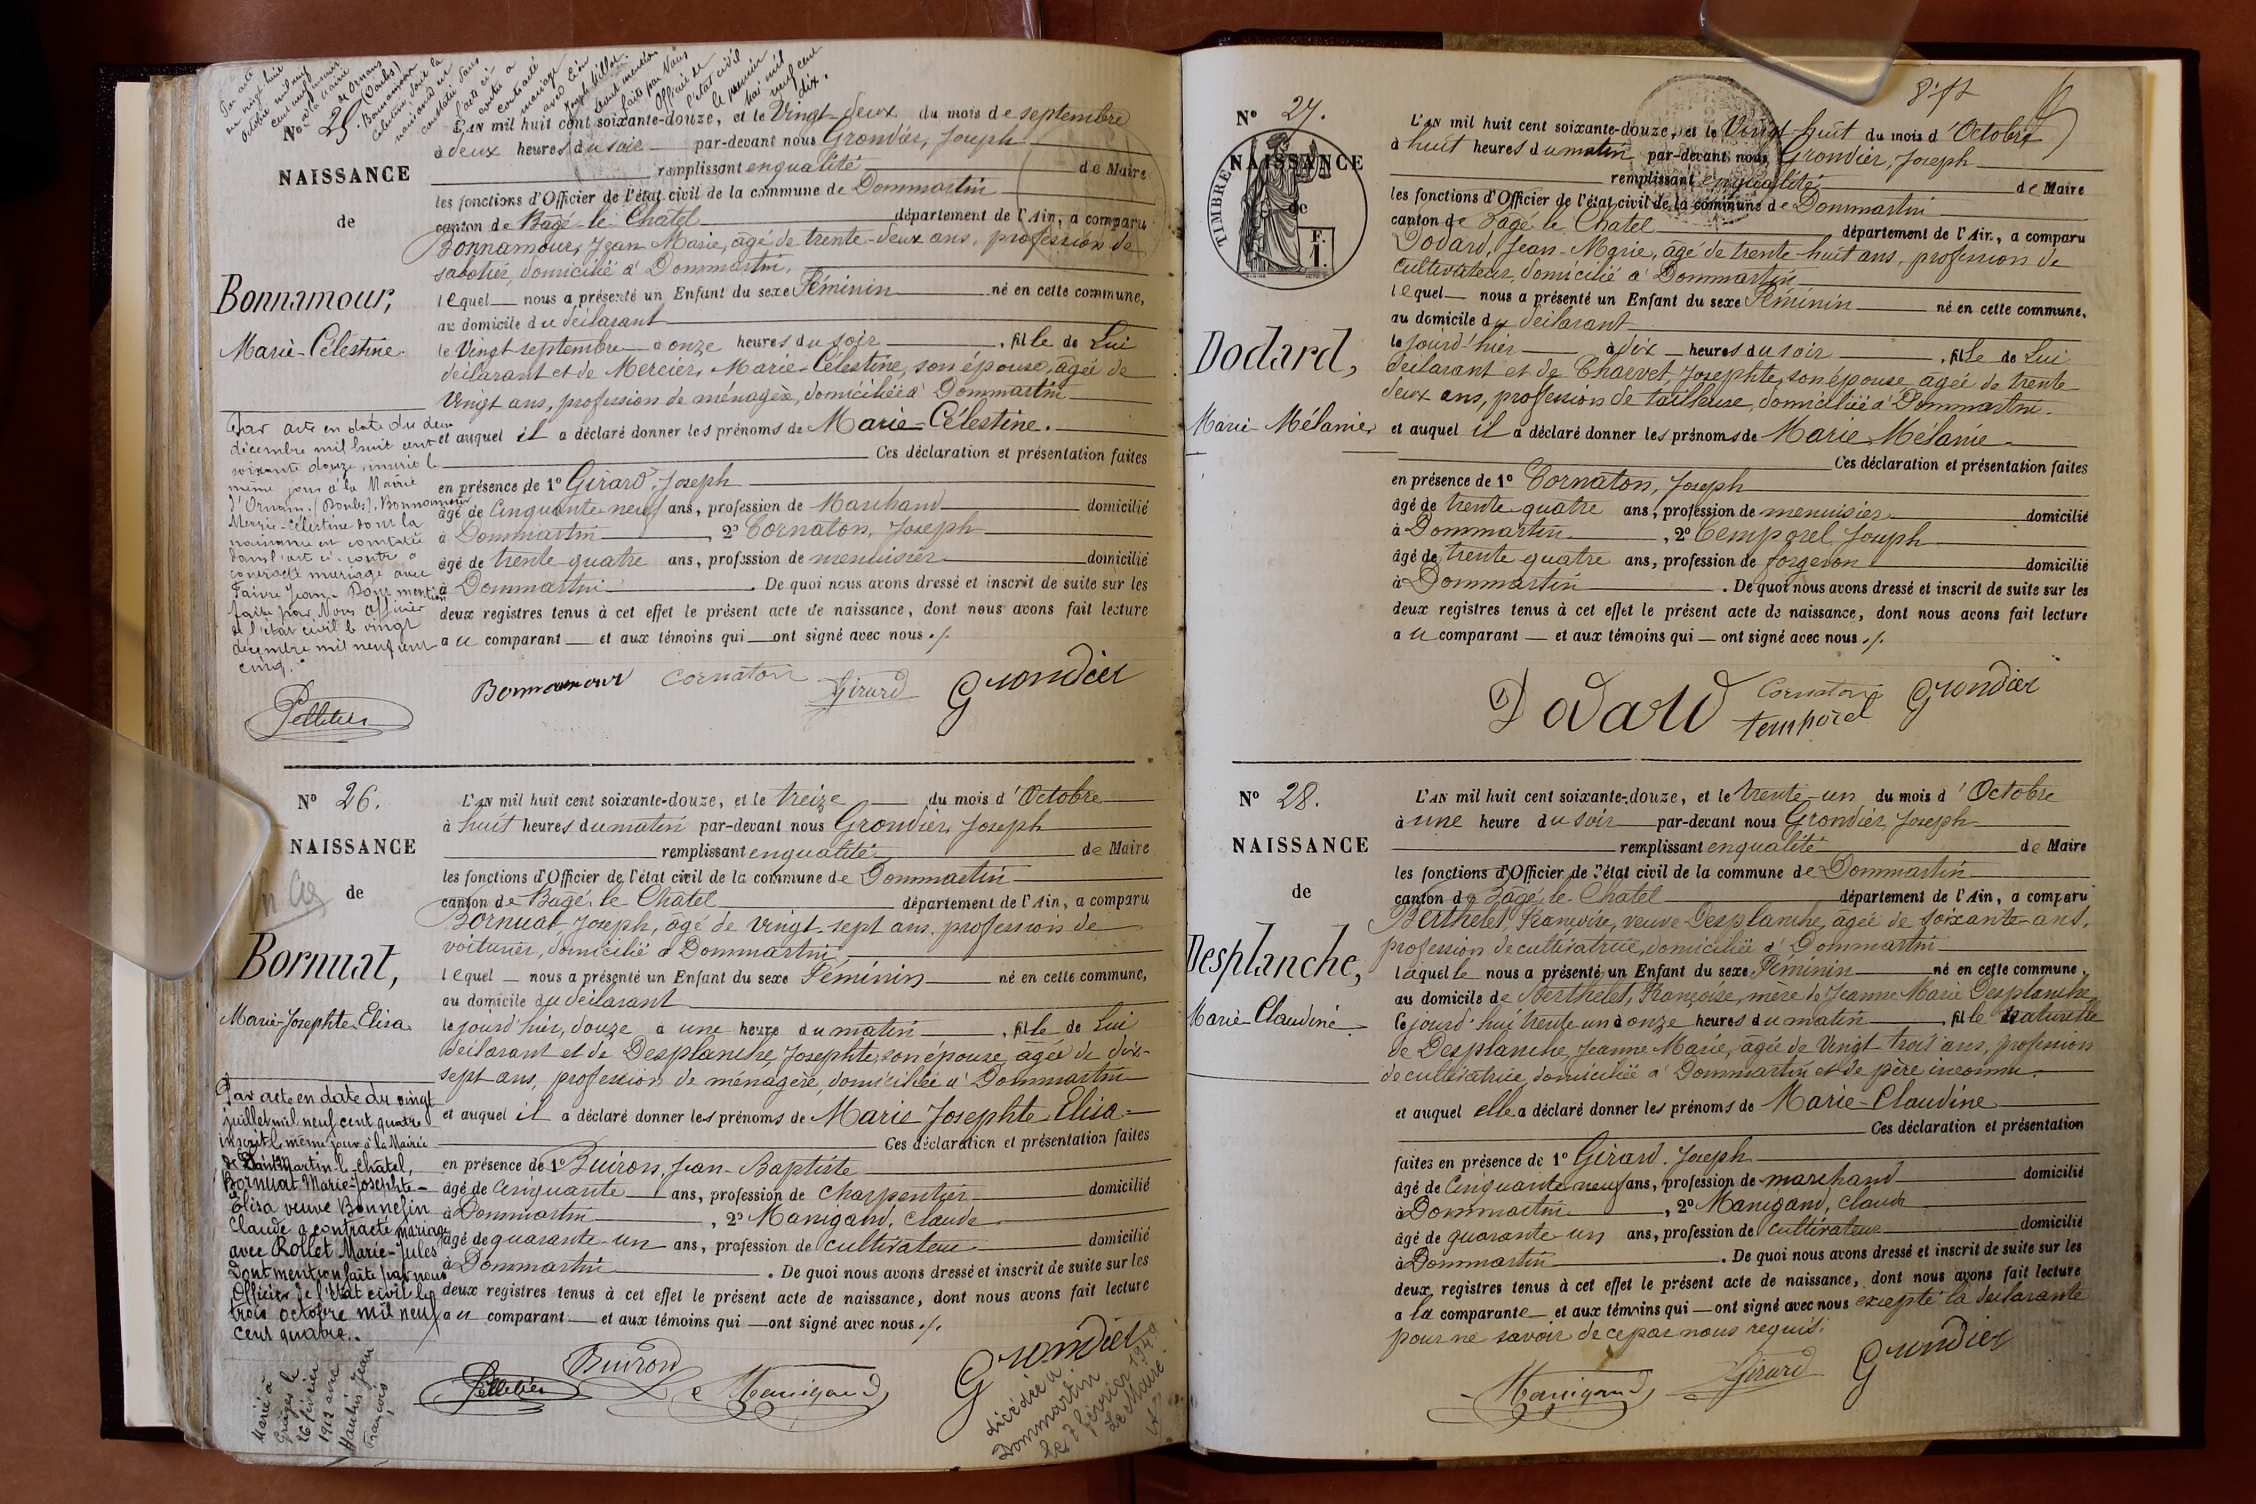 Par acte
en vingt huit
octobre mil neuf
à la Mairie
d'Ornans
(Doubs)
Bonnamour
Célestine, dont la
naissance est
constatée dans
l'acte ci
contre a
contracté
mariage
avec Léon
Joseph Millet.
dont mention
faite par Nous
Officier de
l'état civil
le premier
mai mil
neuf cent
dix.
No 25.
NAISSANCE
de
Bonnamour,
Marie-Célestine.
L'AN mil huit cent soixante-douze, et le Vingt-deux du mois de septembre
à deux heures du soir par-devant nous Grondier, Joseph
remplissant en qualité de Maire
les fonctions d'Officier de l'état civil de la commune de Dommartin
canton de Bagé-le-Chatel département de l'Ain, a comparu
Bonnamour, Jean-Marie, âgé de trente-deux ans, profession de
sabotier, domicilié à Dommartin,
lequel nous a présenté un Enfant du sexe Féminin né en cette commune,
au domicile du déclarant
le Vingt septembre à onze heures du soir, fille de Lui
déclarant et de Mercier, Marie-Célestine, son épouse, âgée de
Vingt ans, profession de ménagère, domiciliée à Dommartin
et auquel il a déclaré donner les prénoms de Marie-Célestine.
Ces déclaration et présentation faites
en présence de 1º Girard, Joseph
âgé de Cinquante neuf ans, profession de Marchand domicilié
à Dommartin, 2º Cornaton, Joseph
âgé de trente quatre ans, profession de menuisier domicilié
à Dommartin. De quoi nous avons dressé et inscrit de suite sur les
deux registres tenus à cet effet le présent acte de naissance, dont nous avons fait lecture
au comparant et aux témoins qui ont signé avec nous ./.
Par acte en date du deux
décembre mil huit cent
soixante douze, inscrit le
même jour à la Mairie
d'Ornans (Doubs), Bonnamour
Marie-Célestine dont la
naissance est constatée
dans l'acte ci-contre a
contracté mariage avec
Faivre Jean. Dont mention
faite par Nous officier
de l'état civil le vingt
décembre mil neuf cent
cinq.
Pelletier
Bonnamour Cornaton Girard Grondier
No 26.
NAISSANCE
de
Bornuat,
Marie-Josephte-Elisa
L'AN mil huit cent soixante-douze, et le treize du mois d'Octobre
à huit heures du matin par-devant nous Grondier, Joseph
remplissant en qualité de Maire
les fonctions d'Officier de l'état civil de la commune de Dommartin
canton de Bagé-le-Châtel département de l'Ain, a comparu
Bornuat, Joseph, âgé de Vingt-sept ans, profession de
voiturier, domicilié à Dommartin,
lequel nous a présenté un Enfant du sexe Féminin né en cette commune,
au domicile du déclarant
le jourd'hier, douze à une heure du matin, fille de Lui
déclarant et de Desplanche, Josephte, son épouse, âgée de dix-
sept ans, profession de ménagère, domiciliée à Dommartin
et auquel il a déclaré donner les prénoms de Marie Josephte Elisa
Ces déclaration et présentation faites
en présence de 1º Buiron, Jean-Baptiste
âgé de Cinquante ans, profession de Charpentier domicilié
à Dommartin, 2º Manigand, Claude
âgé de quarante-un ans, profession de cultivateur domicilié
à Dommartin. De quoi nous avons dressé et inscrit de suite sur les
deux registres tenus à cet effet le présent acte de naissance, dont nous avons fait lecture
au comparant et aux témoins qui ont signé avec nous ./.
Par acte en date du vingt
juillet mil neuf cent quatre
inscrit le même jour à la Mairie
de Saint Martin-le-Châtel,
Bornuat Marie-Josephte-
Elisa veuve Bonnefin
Claude a contracté mariage
avec Rollet Marie-Jules
Dont mention faite par nous
Officier de l'état civil le
trois octobre mil neuf
cent quatre.
Marié à
Grièges le
26 février
1912 avec
Jean
François
Pelletier Buiron Manigand Grondier
décédée à
Dommartin
le 7 février 1940
Le Maire
No 27.
NAISSANCE
de
TIMBRE
F.
1.
Dodard,
Marie Mélanie
L'AN mil huit cent soixante-douze, et le Vingt-huit du mois d'Octobre
à huit heures du matin par-devant nous Grondier, Joseph
remplissant en qualité de Maire
les fonctions d'Officier de l'état civil de la commune de Dommartin
canton de Bagé-le-Chatel département de l'Ain, a comparu
Dodard, Jean-Marie, âgé de trente-huit ans, profession de
cultivateur, domicilié à Dommartin
lequel nous a présenté un Enfant du sexe Féminin né en cette commune,
au domicile du déclarant
le jourd'hier à dix heures du soir, fille de Lui
déclarant et de Charvet, Josephte, son épouse, âgée de trente
deux ans, profession de tailleuse, domiciliée à Dommartin.
et auquel il a déclaré donner les prénoms de Marie Mélanie
Ces déclaration et présentation faites
en présence de 1º Cornaton, Joseph
âgé de trente quatre ans, profession de menuisier domicilié
à Dommartin, 2º Temporel Joseph
âgé de trente quatre ans, profession de forgeron domicilié
à Dommartin. De quoi nous avons dressé et inscrit de suite sur les
deux registres tenus à cet effet le présent acte de naissance, dont nous avons fait lecture
au comparant et aux témoins qui ont signé avec nous ./.
Dodard Cornaton temporel Grondier
No 28.
NAISSANCE
de
Desplanche,
Marie Claudine
L'AN mil huit cent soixante-douze, et le trente-un du mois d'Octobre
à une heure du soir par-devant nous Grondier, Joseph
remplissant en qualité de Maire
les fonctions d'Officier de l'état civil de la commune de Dommartin
canton de Bagé-le-Chatel département de l'Ain, a comparu
Berthelet, Françoise, veuve Desplanche, âgée de soixante ans,
profession de cultivatrice, domiciliée à Dommartin
laquelle nous a présenté un Enfant du sexe Féminin né en cette commune,
au domicile de Berthelet, Françoise, mère de Jeanne Marie Desplanche
le jourd'hui trente un à onze heures du matin, fille naturelle
de Desplanche, Jeanne Marie, âgée de Vingt-trois ans, profession
de cultivatrice, domiciliée à Dommartin et de père inconnu.
et auquel elle a déclaré donner les prénoms de Marie-Claudine
Ces déclaration et présentation
faites en présence de 1º Girard, Joseph
âgé de Cinquante neuf ans, profession de marchand domicilié
à Dommartin, 2º Manigand, Claude
âgé de quarante un ans, profession de cultivateur domicilié
à Dommartin. De quoi nous avons dressé et inscrit de suite sur les
deux registres tenus à cet effet le présent acte de naissance, dont nous avons fait lecture
a la comparante et aux témoins qui ont signé avec nous excepté la déclarante
pour ne savoir de ce par nous requis.
Manigand Girard Grondier